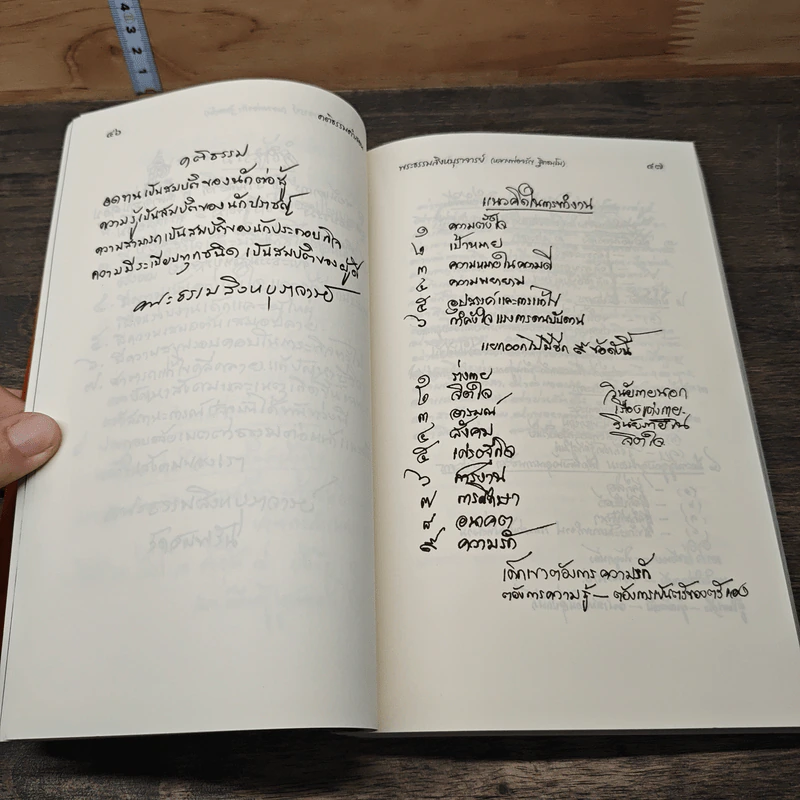 4
3
2
๔๖
คติธรรม
อดทนเป็นสมบัติของนักต่อสู้
ความรู้เป็นสมบัติของนักปราชญ์
ความสามารถเป็นสมบัติของนักประกอบกิจ
ความมีระเบียบทุกชนิดเป็นสมบัติของผู้ดี
พระธรรมสิงหบุราจารย์
พระธรรมสิงหบุราจารย์ (หลวงพ่อจรัญ ฐิตธมฺโม)
๔๗
แนวคิดในการทำงาน
๑ ความตั้งใจ
๒ เป้าหมาย
๓ ความหมายในความดี
๔ ความพยายาม
๕ อุปสรรคและการแก้ไข
๖ กำลังใจ แรงการดลบันดาล
แยกออกไปมีอีก ๙ ข้อดังนี้
๑ ร่างกาย
๒ จิตใจ
๓ อารมณ์
๔ สังคม
๕ เศรษฐกิจ
๖ การงาน
๗ การศึกษา
๘ อนาคต
๙ ความรัก
วินัยภายนอก
เรื่องร่างกาย
วินัยภายใน
จิตใจ
เด็กเขาต้องการความรัก
ต้องการความรู้ — ต้องการเป็นตัวของตัวเอง